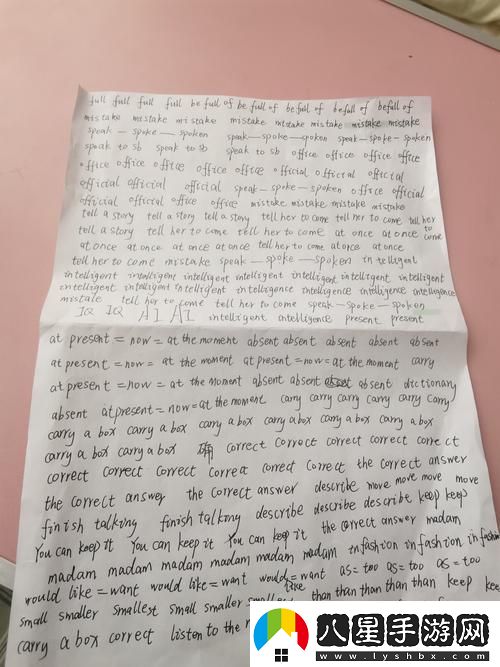 full full full full be full of be full of be full of be full of be full of
mistake mistake mistake mistake mistake mistake mistake mistake
speak — spoke — spoken speak — spoke — spoken speak — spoke — spoken
speak to sb speak to sb speak to sb office office office office
office office office office office office official official official
official official official speak — spoke — spoken office official
official official office office mistake mistake mistake mistake
tell a story tell a story tell a story tell her to come tell her to come tell her
tell a story tell her to come tell her to come at once at once to come
at once at once at once at once tell her to come at once at once
tell her to come mistake speak — spoke — spoken intelligent
intelligent intelligent intelligent intelligent intelligent intelligent intelligent
intelligent intelligent intelligent intelligence intelligence intelligence intelligence
mistake tell her to come tell her to come speak — spoke — spoken
IQ IQ AI AI intelligent intelligence present present
at present = now = at the moment absent absent absent absent absent
at present = now = at the moment at present = now = at the moment carry
at present = now = at the moment absent absent absent dictionary
absent at present = now = at the moment carry carry carry carry carry carry
carry a box carry a box carry a box carry a box carry a box carry a box
carry a box carry a box 确 correct correct correct correct correct
correct correct correct correct correct correct the correct answer
the correct answer the correct answer describe move move move move
finish talking finish talking describe describe describe keep keep
You can keep it You can keep it You can keep it the correct answer madam
madam madam madam madam madam madam in fashion in fashion in fashion
would like = want would like = want would like = want as = too as = too as = too
small smaller smallest small smaller smallest than than than than than keep
carry a box correct listen to the
八星手游网
www.lyshbx.com